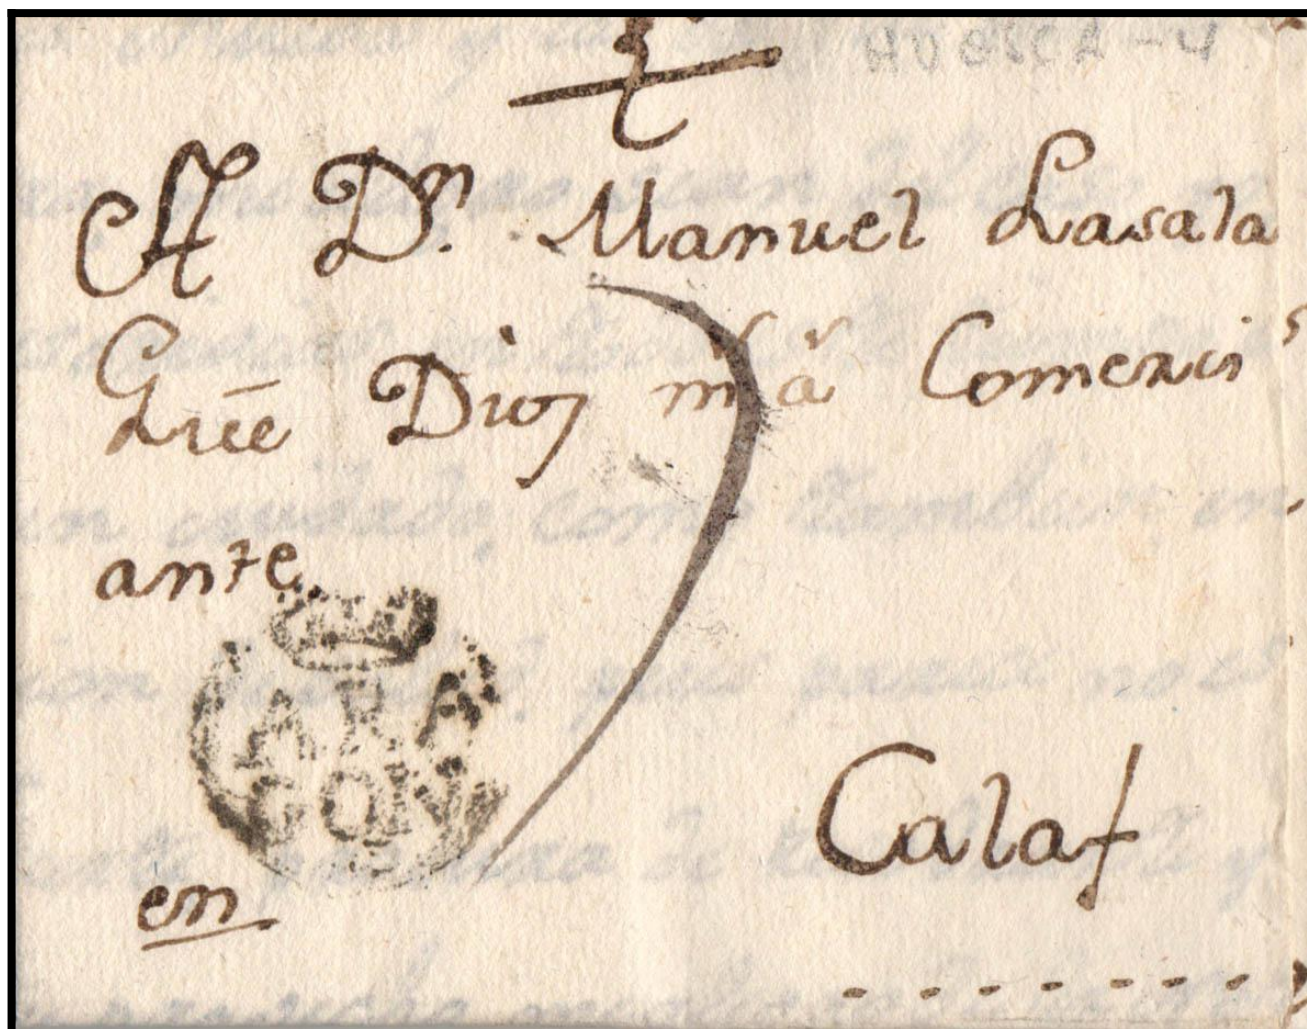 HUESCA-4
A Dn. Manuel Lasala
Gũe Dios ms as Comerci
ante
ARA
GON
en Calaf